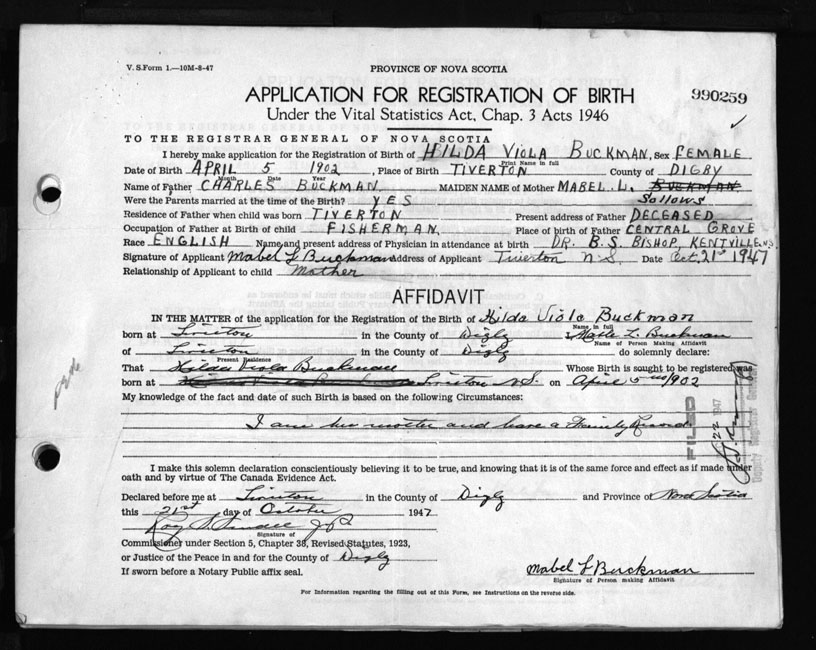 V. S. Form 1.—10M-8-47
PROVINCE OF NOVA SCOTIA
APPLICATION FOR REGISTRATION OF BIRTH
990259
Under the Vital Statistics Act, Chap. 3 Acts 1946
TO THE REGISTRAR GENERAL OF NOVA SCOTIA
I hereby make application for the Registration of Birth of HILDA VIOLA BUCKMAN, Sex FEMALE
Print Name in full
Date of Birth APRIL 5 1902, Place of Birth TIVERTON County of DIGBY
Month Date Year
Name of Father CHARLES BUCKMAN MAIDEN NAME of Mother MABEL. L. BUCKMAN
Sollows
Were the Parents married at the time of the Birth? YES
Residence of Father when child was born TIVERTON Present address of Father DECEASED
Occupation of Father at Birth of child FISHERMAN Place of birth of Father CENTRAL GROVE
Race ENGLISH Name and present address of Physician in attendance at birth DR. B.S. BISHOP, KENTVILLE N.S.
Signature of Applicant Mabel L Buckman Address of Applicant Tiverton N.S. Date Oct. 21st 1947
Relationship of Applicant to child Mother
AFFIDAVIT
IN THE MATTER of the application for the Registration of the Birth of Hilda Viola Buckman
Name in full
born at Tiverton in the County of Digby L. Buckman
Name of Person Making Affidavit
of Tiverton in the County of Digby do solemnly declare:
Present Residence
That Hilda Viola Buckman Whose Birth is sought to be registered was
born at Tiverton N.S. on April 5 1902
My knowledge of the fact and date of such Birth is based on the following Circumstances:
I am her mother and have a Family Record
FILED
22 1947
Deputy Registrar General
I make this solemn declaration conscientiously believing it to be true, and knowing that it is of the same force and effect as if made under
oath and by virtue of The Canada Evidence Act.
Declared before me at Tiverton in the County of Digby and Province of Nova Scotia
this 21st day of October 1947
Signature of
Commissioner under Section 5, Chapter 38, Revised Statutes, 1923,
or Justice of the Peace in and for the County of Digby
If sworn before a Notary Public affix seal.
Mabel L Buckman
Signature of Person making Affidavit
For Information regarding the filling out of this Form, see Instructions on the reverse side.